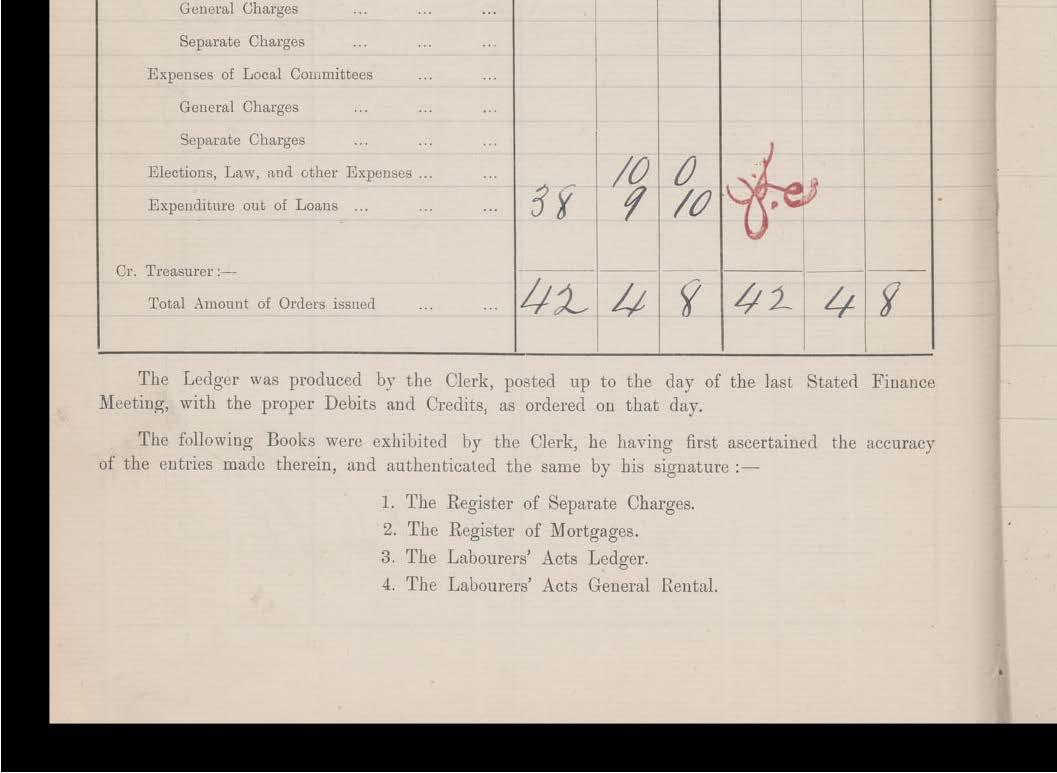 General Charges ... ... ...
Separate Charges ... ... ...
Expenses of Local Committees ... ...
General Charges ... ... ...
Separate Charges ... ... ...
Elections, Law, and other Expenses ... ... 10 0
Expenditure out of Loans ... ... ... 38 9 10
Cr. Treasurer :—
Total Amount of Orders issued ... ... 42 4 8 42 4 8
The Ledger was produced by the Clerk, posted up to the day of the last Stated Finance
Meeting, with the proper Debits and Credits, as ordered on that day.
The following Books were exhibited by the Clerk, he having first ascertained the accuracy
of the entries made therein, and authenticated the same by his signature :—
1. The Register of Separate Charges.
2. The Register of Mortgages.
3. The Labourers' Acts Ledger.
4. The Labourers' Acts General Rental.